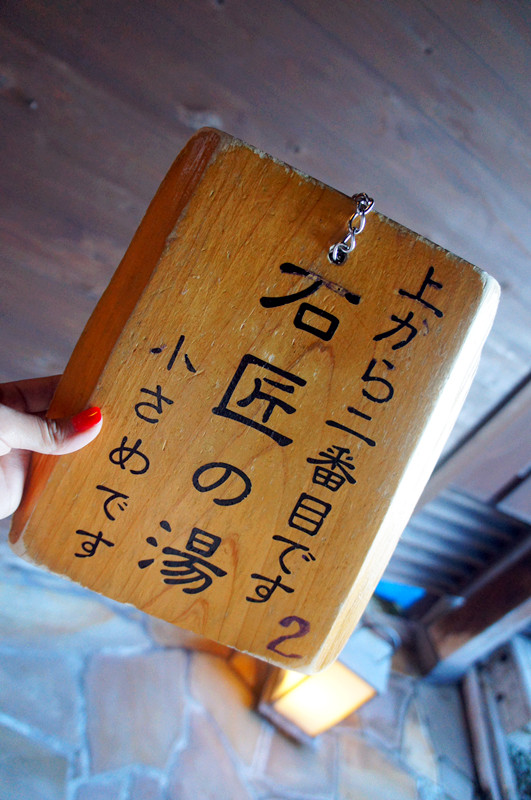 上から二番目です
2
石匠の湯
小さめです